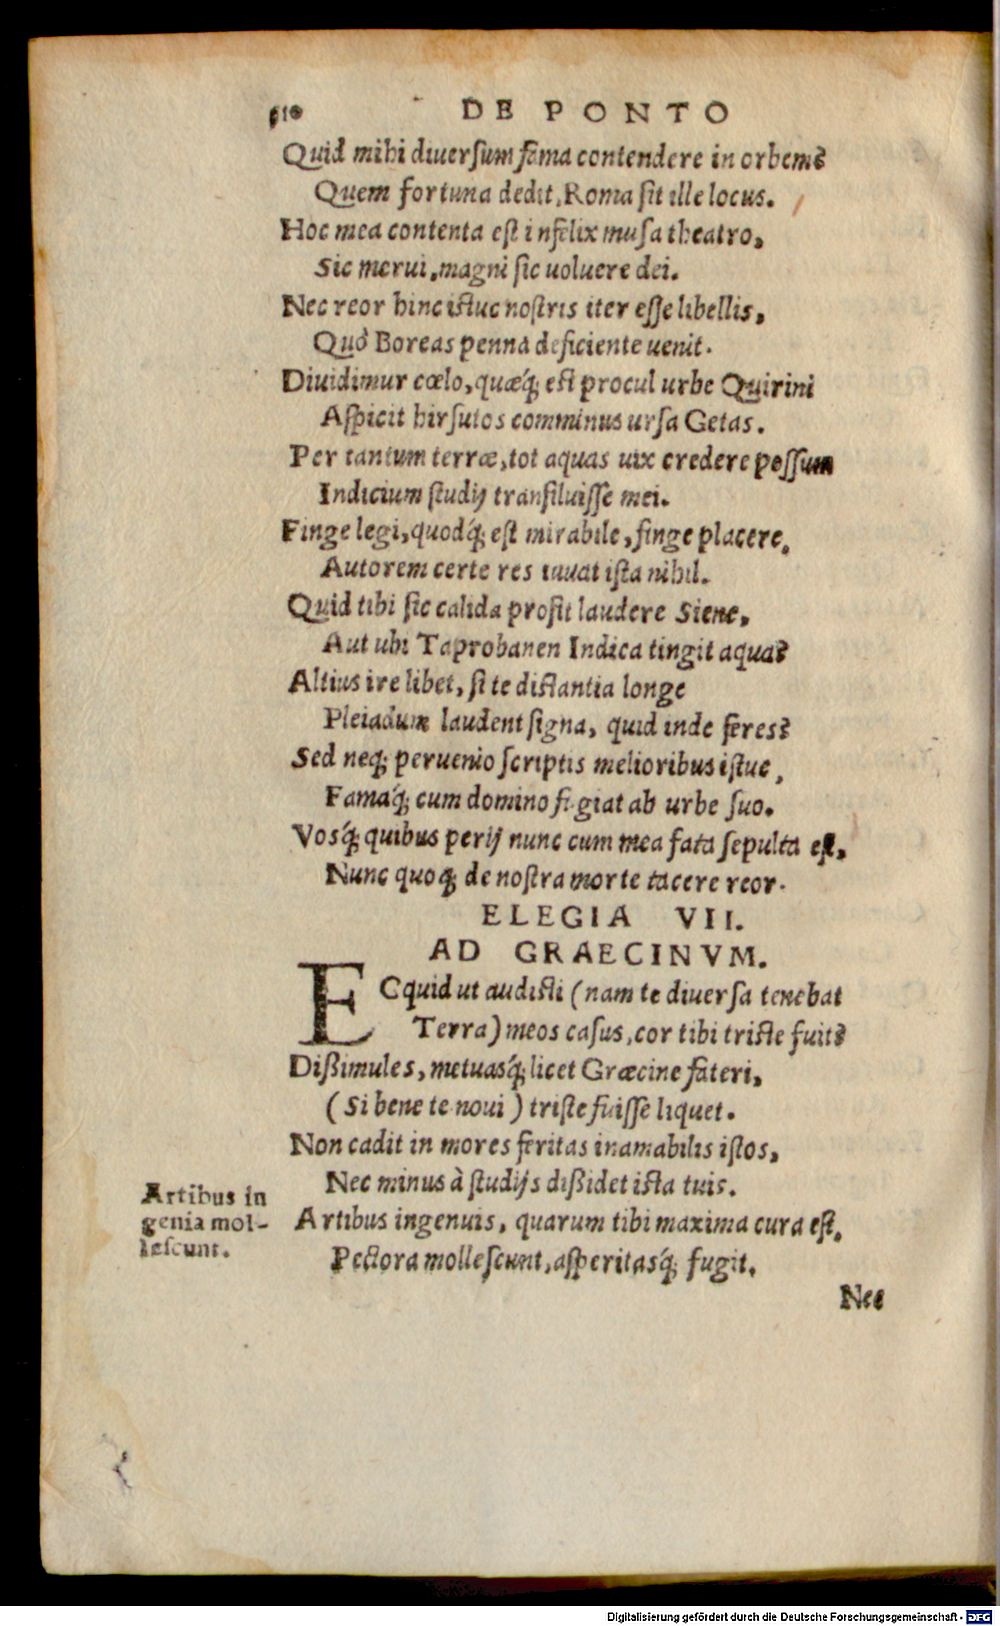 510 DE PONTO
Quid mihi diuersum fama contendere in orbem?
Quem fortuna dedit, Roma sit ille locus.
Hoc mea contenta est infelix musa theatro,
Sic merui, magni sic uoluere dei.
Nec reor hinc istuc nostris iter esse libellis,
Quò Boreas penna deficiente uenit.
Diuidimur cœlo, quæq́; est procul urbe Quirini
Aspicit hirsutos comminus ursa Getas.
Per tantum terræ, tot aquas uix credere possum
Indicium studij transiluisse mei.
Finge legi, quodq́; est mirabile, finge placere,
Autorem certe res iuuat ista nihil.
Quid tibi sic calida prosit laudere Siene,
Aut ubi Taprobanen Indica tingit aqua?
Altius ire libet, si te distantia longe
Pleiadum laudent signa, quid inde feres?
Sed neq; peruenio scriptis melioribus istuc,
Famaq́; cum domino fugiat ab urbe suo.
Vosq́; quibus perij nunc cum mea fata sepulta est,
Nunc quoq; de nostra morte tacere reor.
ELEGIA VII.
AD GRAECINVM.
ECquid ut audisti (nam te diuersa tenebat
Terra) meos casus, cor tibi triste fuit?
Dißimules, metuasq́; licet Græcine fateri,
(Si bene te noui) triste fuisse liquet.
Non cadit in mores feritas inamabilis istos,
Nec minus à studijs dißidet ista tuis.
Artibus in
genia mol-
lescunt.
Artibus ingenuis, quarum tibi maxima cura est,
Pectora mollescunt, asperitasq́; fugit.
Nec
Digitalisierung gefördert durch die Deutsche Forschungsgemeinschaft - DFG